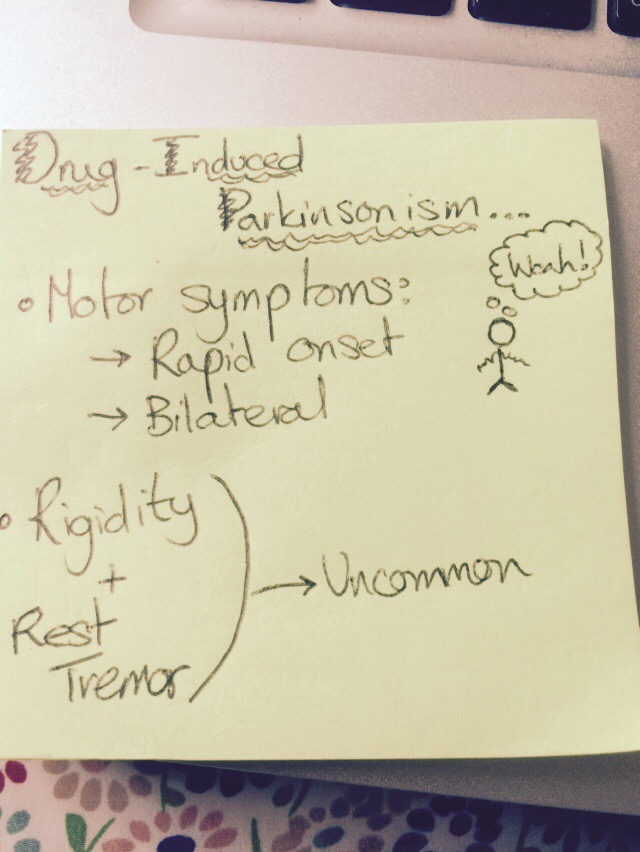 Drug-Induced
Parkinsonism...
Woah!
• Motor symptoms:
→ Rapid onset
→ Bilateral
• Rigidity
+
Rest
Tremor
→ Uncommon